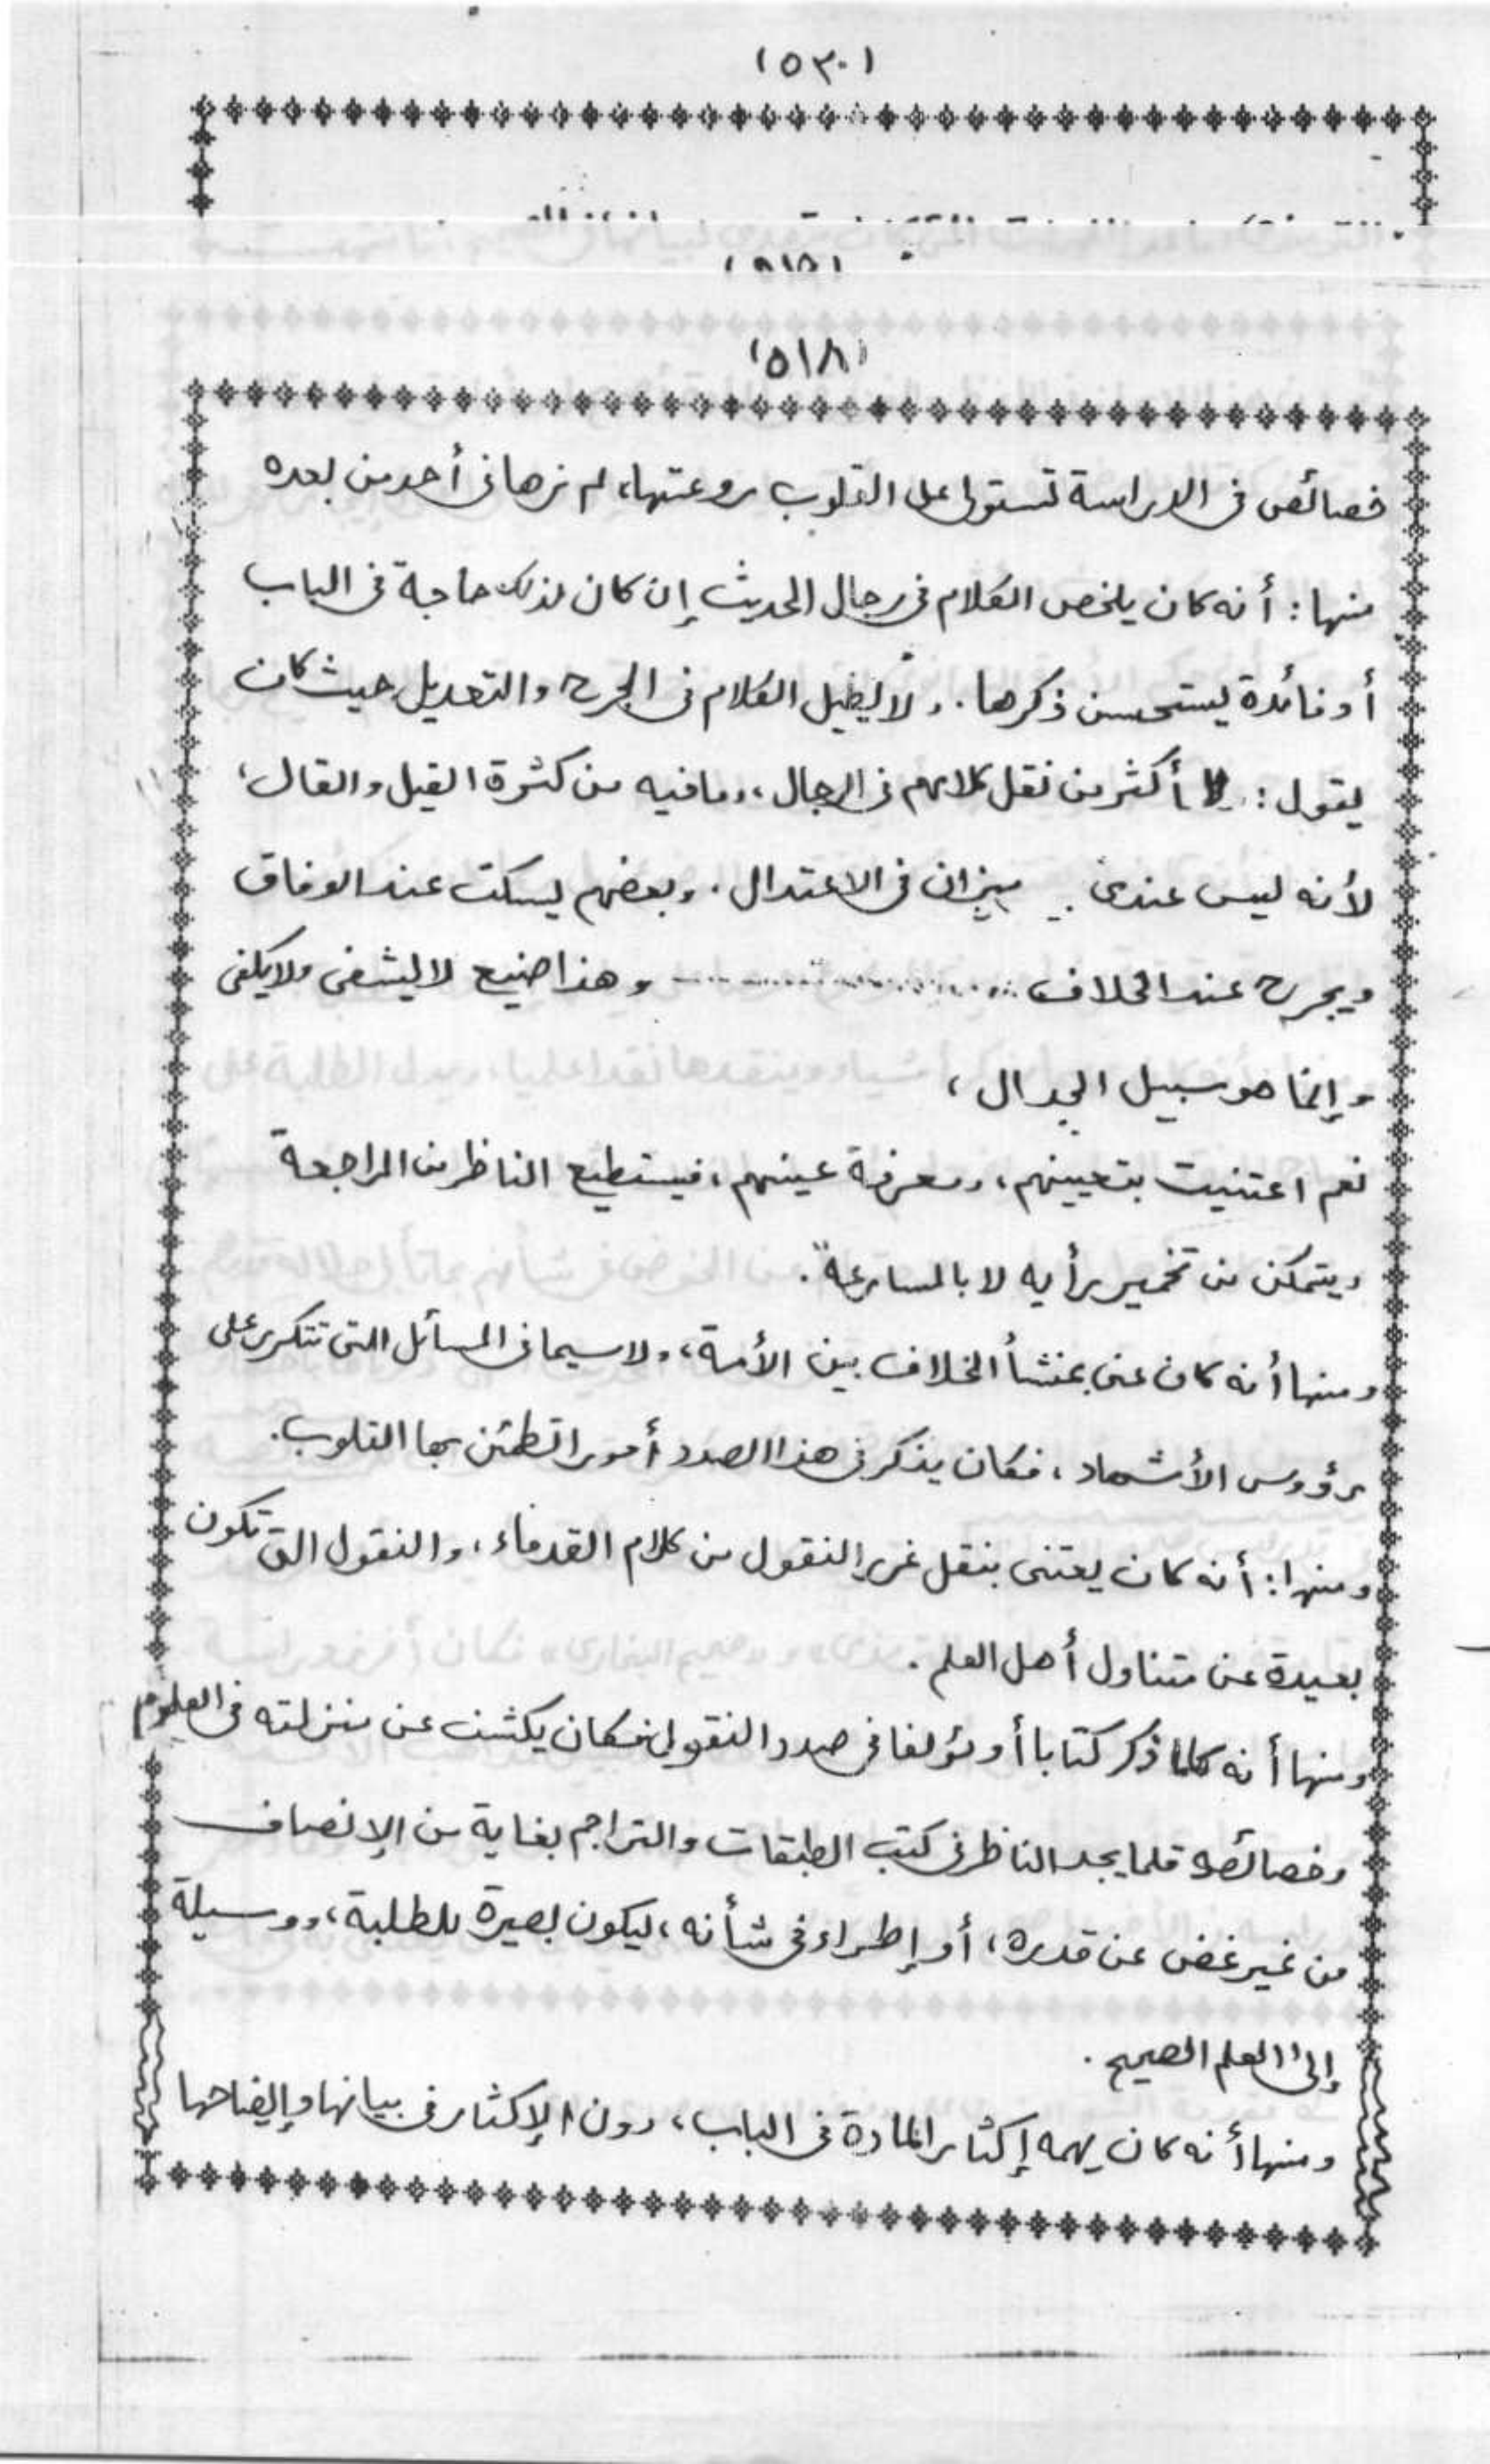 (٥٢٠)
(٥١٨)
خصائص فى الدراسة تستولى على القلوب روعتها، لم نرها فى أحد من بعده
منها: أنه كان يلخص الكلام فى رجال الحديث إن كان لذلك حاجة فى الباب
أو فائدة يستحسن ذكرها. ولا يطيل الكلام فى الجرح والتعديل حيث كان
يقول: لا أكثر من نقل كلامهم فى الرجال، وما فيه من كثرة القيل والقال،
لأنه ليس عندى ميزان فى الاعتدال. وبعضهم يسكت عند الوفاق
ويجرح عند الخلاف وهذا صنيع لا يشفى ولا يكفى
وإنما هو سبيل الجدال،
نعم اعتنيت بتعيينهم، ومعرفة عينهم، فيستطيع الناظر من المراجعة
ويتمكن من تخمير رأيه لا بالمسارعة".
ومنها أنه كان عنى بمنشأ الخلاف بين الأمة، ولا سيما فى المسائل التى تتكرر على
رؤوس الأشهاد، فكان يذكر فى هذا الصدد أمورا تطمئن بها القلوب.
ومنها: أنه كان يعتنى بنقل غرر النقول من كلام القدماء، والنقول التى تكون
بعيدة عن متناول أهل العلم.
ومنها أنه كلما ذكر كتابا أو مؤلفا فى صدد النقول فكان يكشف عن منزلته فى العلوم
وخصائصه قلما يجد الناظر فى كتب الطبقات والتراجم بغاية من الإنصاف
من غير غض عن قدره، أو إطراء فى شأنه، ليكون بصيرة للطلبة، ووسيلة
إلى العلم الصحيح.
ومنها أنه كان يهمه إكثار المادة فى الباب، دون الإكثار فى بيانها وإيضاحها